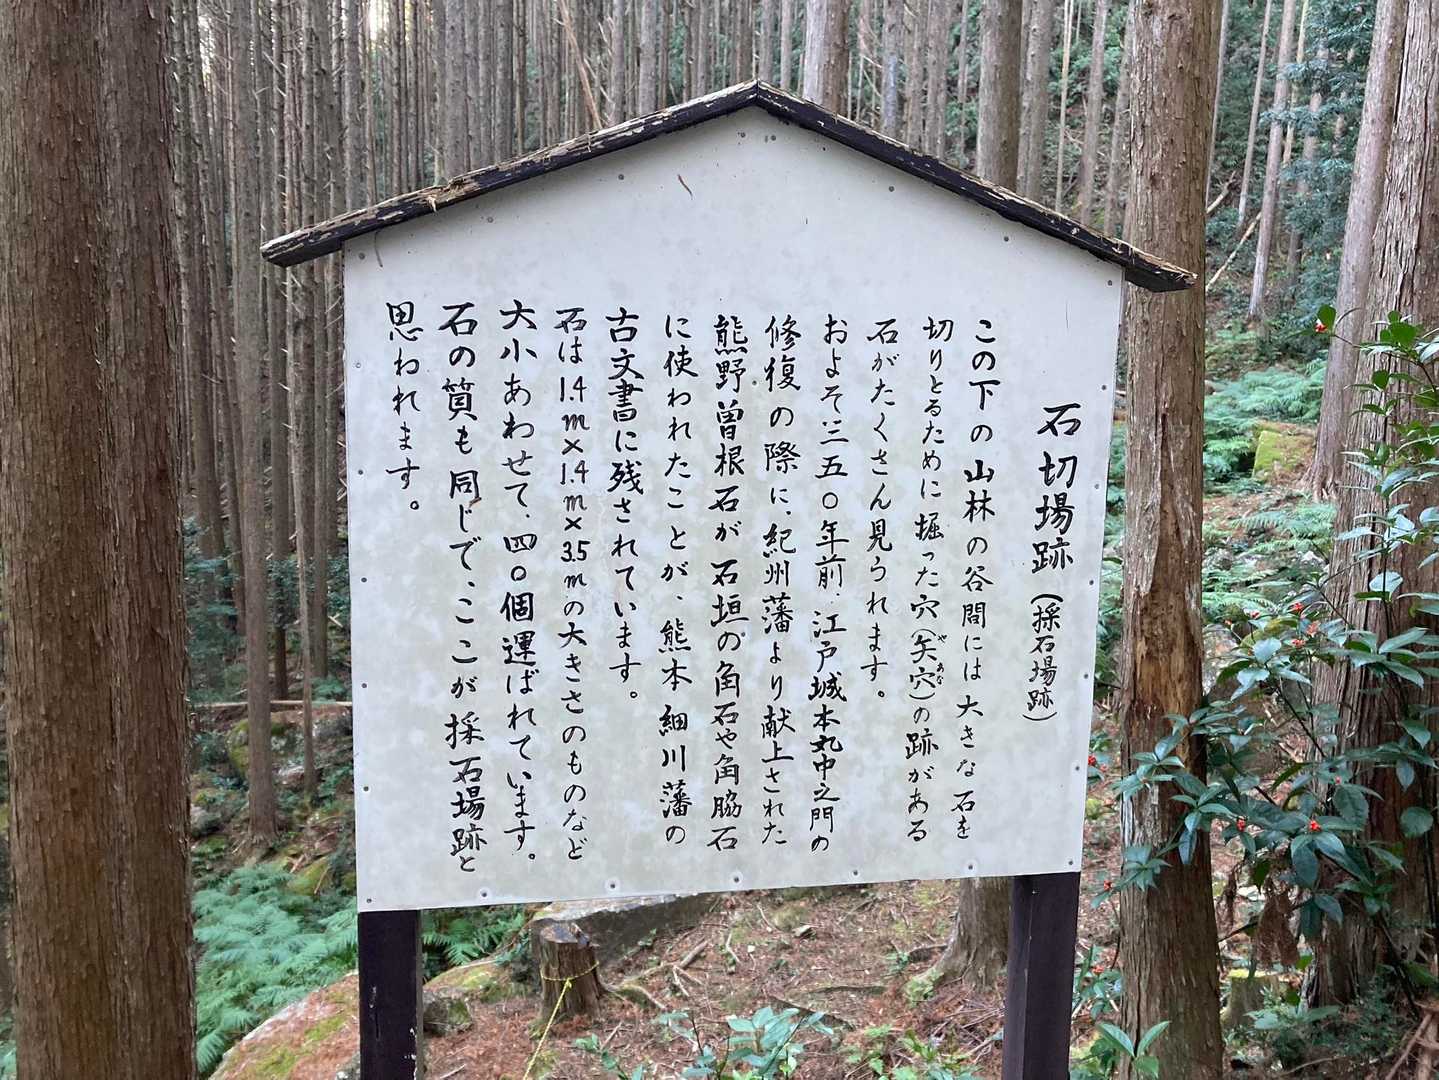 石切場跡(採石場跡)
この下の山林の谷間には大きな石を
切りとるために掘った穴(矢穴)の跡がある
やあな
石がたくさん見られます。
およそ三五〇年前、江戸城本丸中之門の
修復の際に、紀州藩より献上された
熊野曽根石が石垣の角石や角脇石
に使われたことが、熊本細川藩の
古文書に残されています。
石は1.4m×1.4m×3.5mの大きさのものなど
大小あわせて、四〇個運ばれています。
石の質も同じで、ここが採石場跡と
思われます。